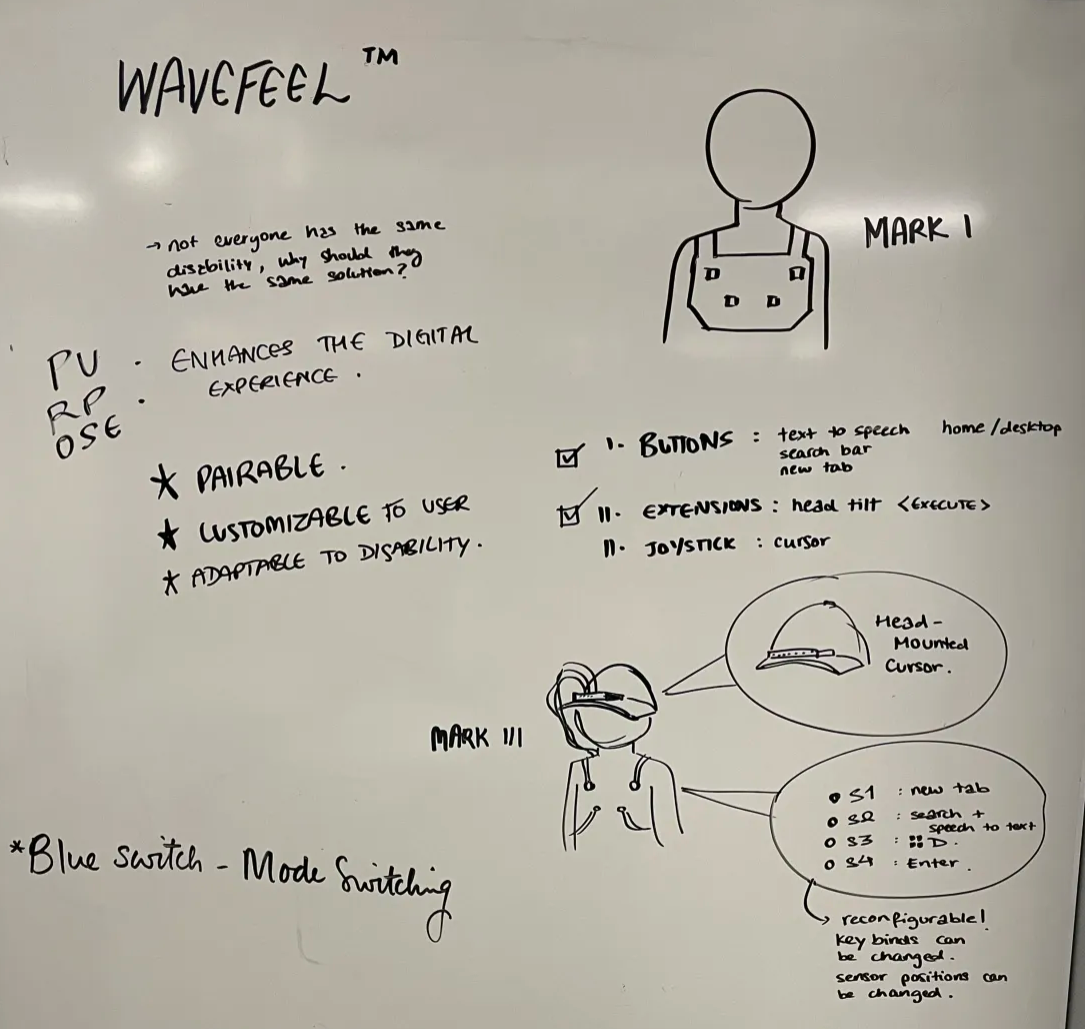 WAVEFEEL ™
→ not everyone has the same
disability, why should they
have the same solution?
PU . ENHANCES THE DIGITAL
RP . EXPERIENCE .
OSE
★ PAIRABLE .
★ CUSTOMIZABLE TO USER
★ ADAPTABLE TO DISABILITY .
*Blue switch - Mode Switching
MARK I
I. BUTTONS : text to speech home/desktop
search bar
new tab
II. EXTENSIONS : head tilt <EXECUTE>
II. JOYSTICK : cursor
Head-
Mounted
Cursor.
MARK III
S1 : new tab
S2 : search +
speech to text
S3 : D.
S4 : Enter .
→ reconfigurable!
key binds can
be changed.
sensor positions can
be changed.